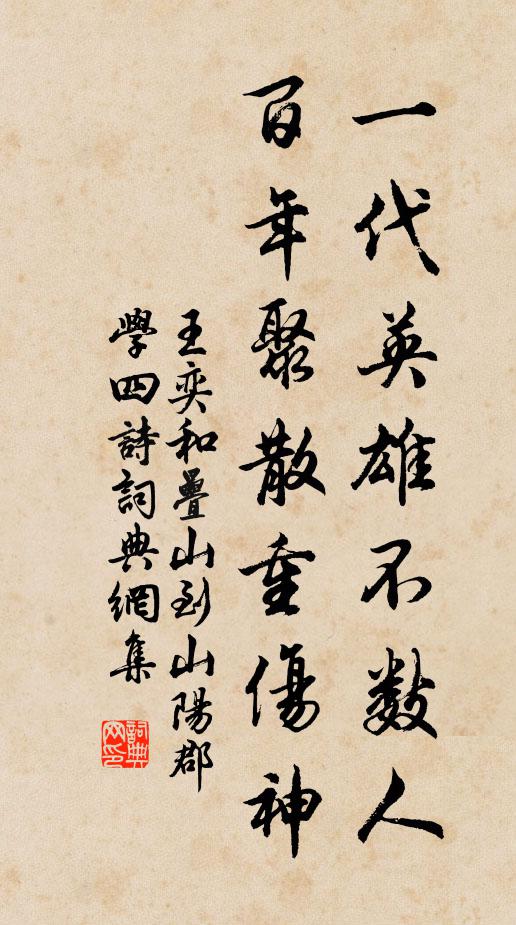 一代英雄不數人
百年聚散重傷神
王奕和疊山到山陽郡
學四詩詞典網集
詞典
网印